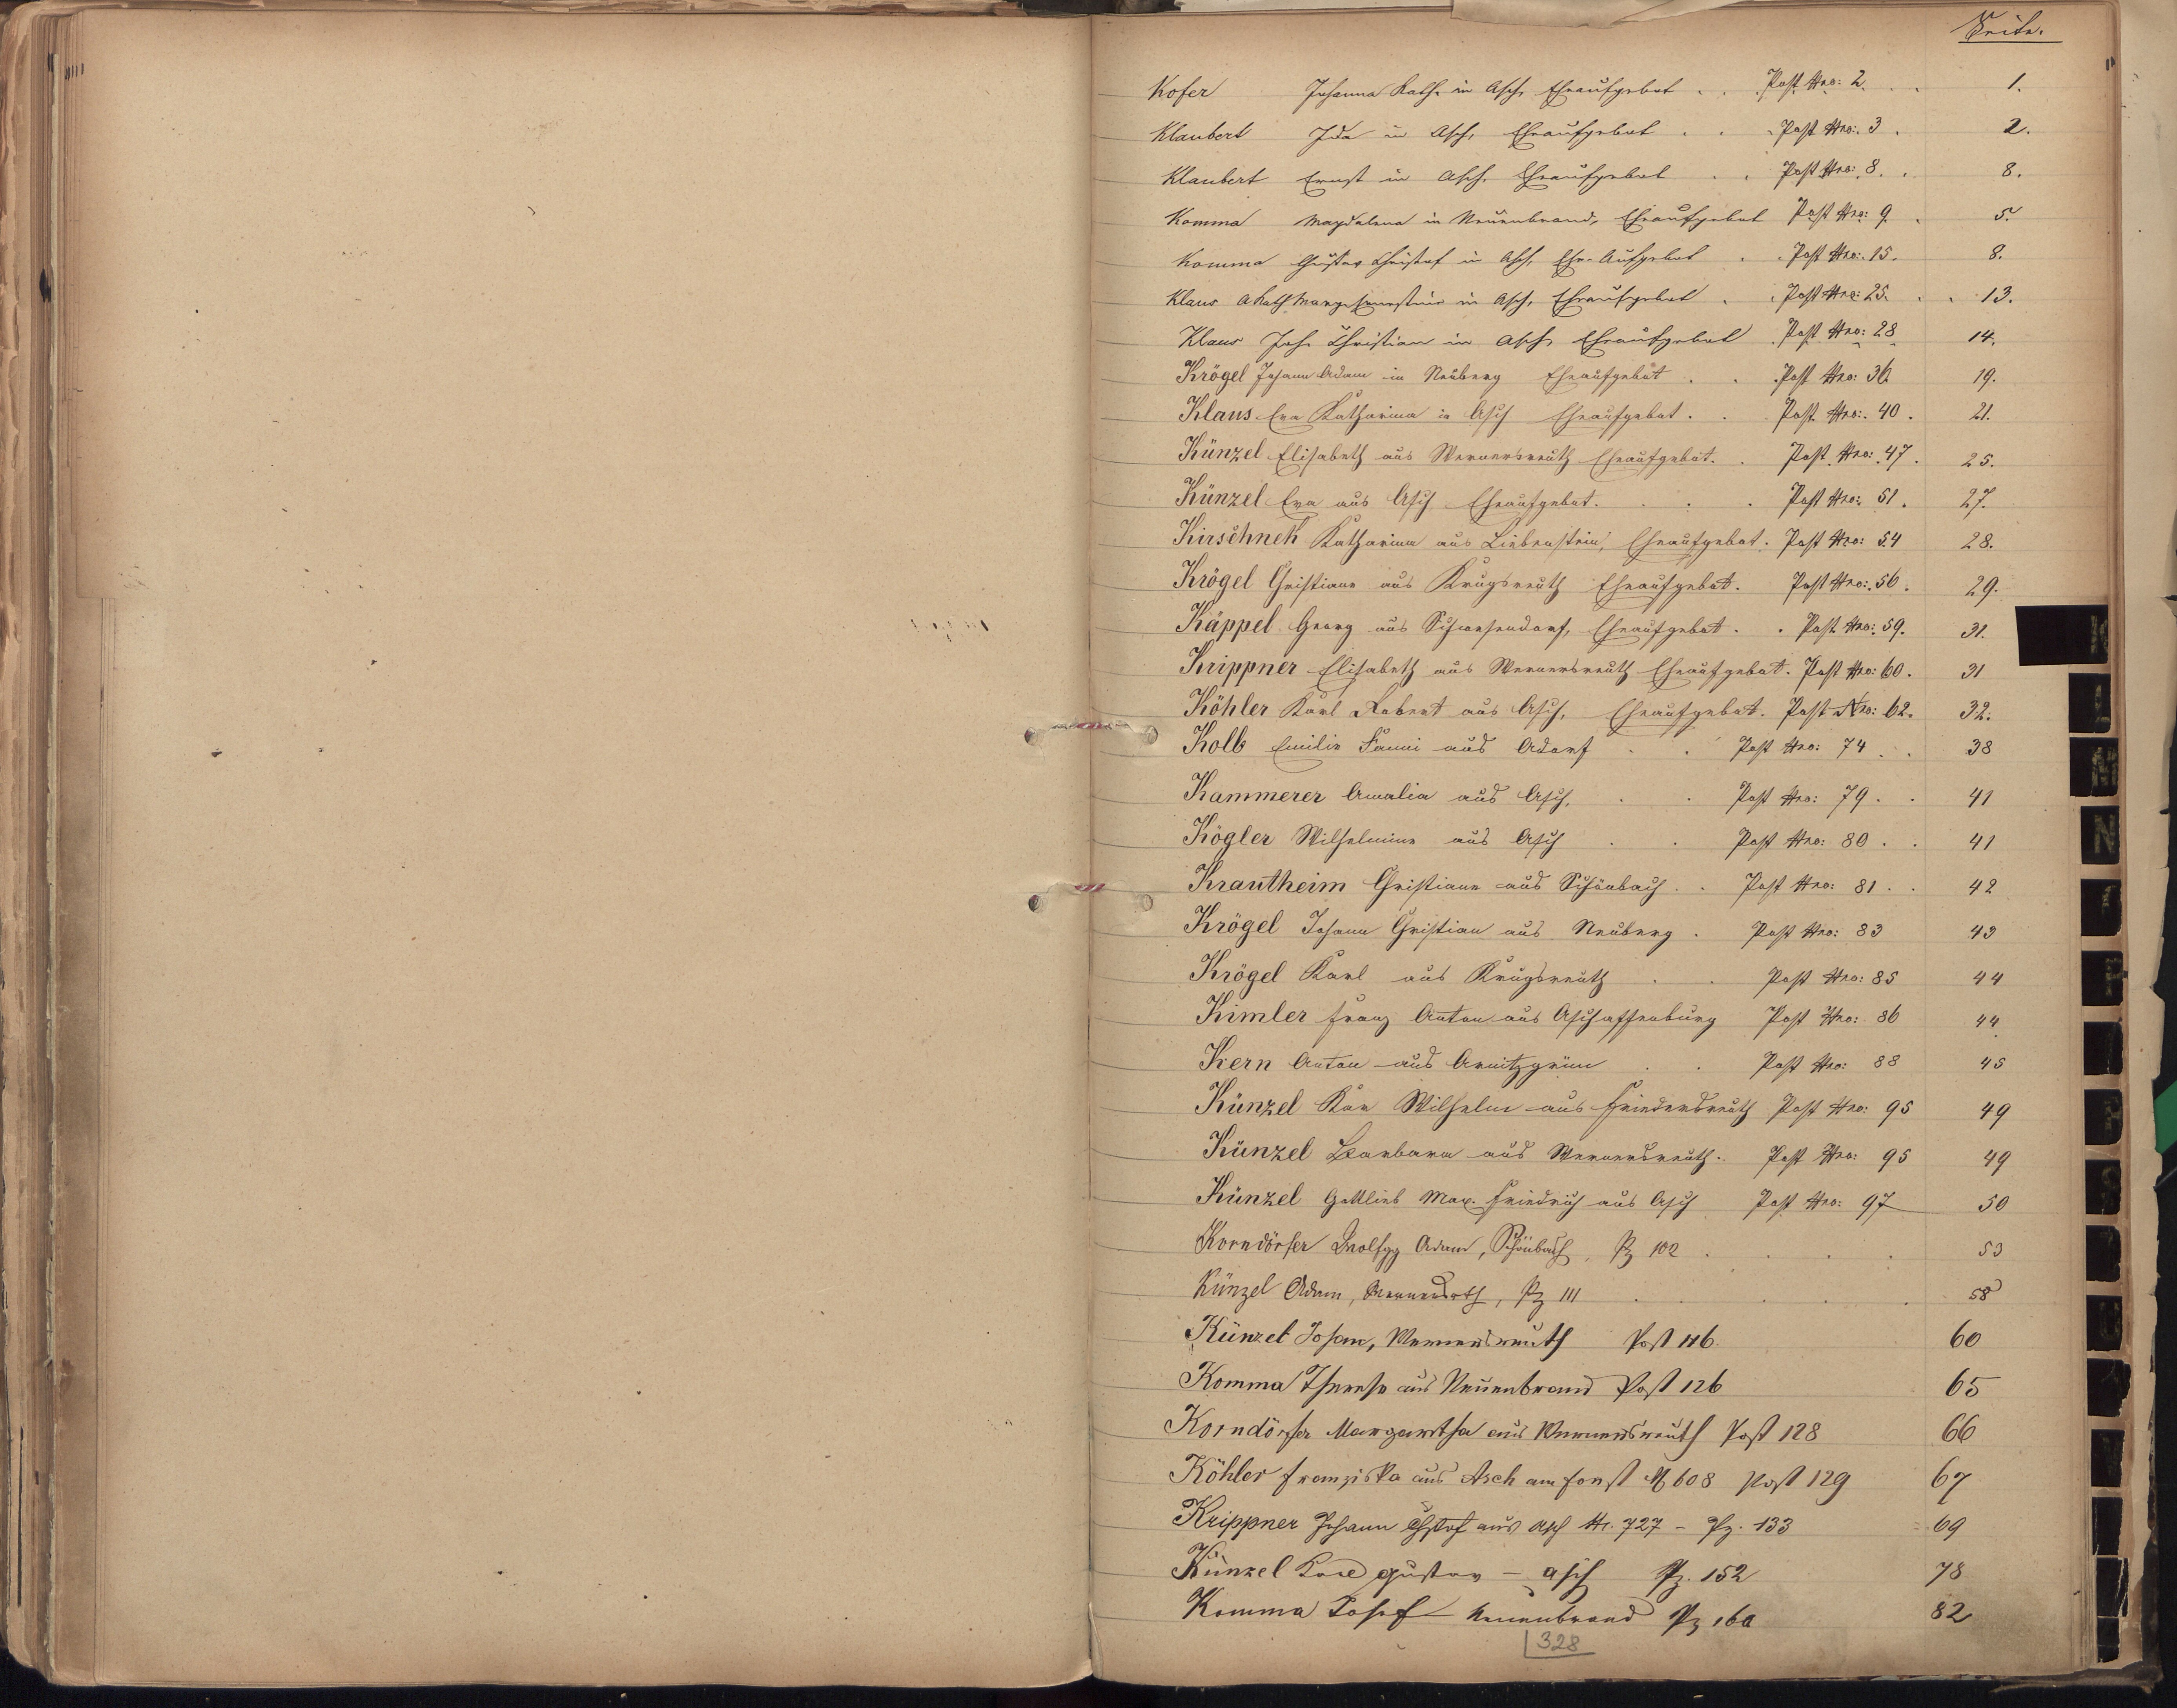 Seite.
Kofer Johanna Kath. in Asch, Eheaufgebot . . Post Nro: 2. . . 1.
Klaubert Ida in Asch, Eheaufgebot . . . Post Nro: 3 . 2.
Klaubert Ernst in Asch, Eheaufgebot . . Post Nro: 8. . 8.
Komma Magdalena in Neuenbrand, Eheaufgebot Post Nro: 9. . 5.
Komma Gustav Christof in Asch, Ehe-Aufgebot . . Post Nro: 15. 8.
Klaus in Asch, Eheaufgebot . . Post Nro: 25. . . 13.
Klaus Joh. Christian in Asch, Eheaufgebot . Post Nro: 28 14.
Krögel Johann Adam in Neuberg Eheaufgebot . . Post Nro: 36. 19.
Klaus Eva Katharina in Asch Eheaufgebot . . Post Nro: 40 . 21.
Künzel Elisabeth aus Wernersreuth Eheaufgebot. . Post Nro: 47 . 25.
Künzel Eva aus Asch Eheaufgebot. . . . Post Nro: 51 . 27.
Kirschnek Katharina aus Liebenstein, Eheaufgebot. Post Nro: 54 28.
Krögel Christiane aus Krugsreuth Eheaufgebot. Post Nro: 56 . 29.
Käppel Georg aus Eheaufgebot . . Post Nro: 59. 31.
Krippner Elisabeth aus Wernersreuth Eheaufgebot. Post Nro: 60. 31
Köhler Karl Robert aus Asch, Eheaufgebot. Post Nro: 62. 32.
Kolb Emilie Fanni aus Adorf . . Post Nro: 74 . . 38
Kammerer Amalia aus Asch, . . Post Nro: 79 . . 41
Kögler Wilhelmine aus Asch . . Post Nro: 80 . . 41
Krautheim Christiane aus Schönbach . . Post Nro: 81 . . 42
Krögel Johann Christian aus Neuberg . Post Nro: 83 43
Krögel Karl aus Krugsreuth . . Post Nro: 85 44
Kimler Franz Anton aus Aschaffenburg Post Nro: 86 44
Kern Anton aus Arnitzgrün . . Post Nro: 88 45
Künzel Wilhelm aus Friedersreuth Post Nro: 95 49
Künzel Barbara aus Wernersreuth. Post Nro: 95 49
Künzel Gottlieb Max. Friedrich aus Asch Post Nro: 97 50
Korndörfer Wolfgg Adam, Schönbach, Pz 102 . . . . 53
Künzel Adam, Wernersrth, Pz 111 . . . . 58
Künzel Johann, Wernersreuth Post 116 60
Komma Therese aus Neuenbrand Post 126 65
Korndörfer Margaretha aus Wernersreuth Post 128 66
Köhler Franziska aus Asch am Forst N 608 Post 129 67
Krippner Johann Chstof aus Asch Nr. 727 - Pz. 133 69
Künzel Karl Gustav - Asch Pz. 152 78
Komma Josef Neuenbrand Pz 160 82
328
K
L
M
N